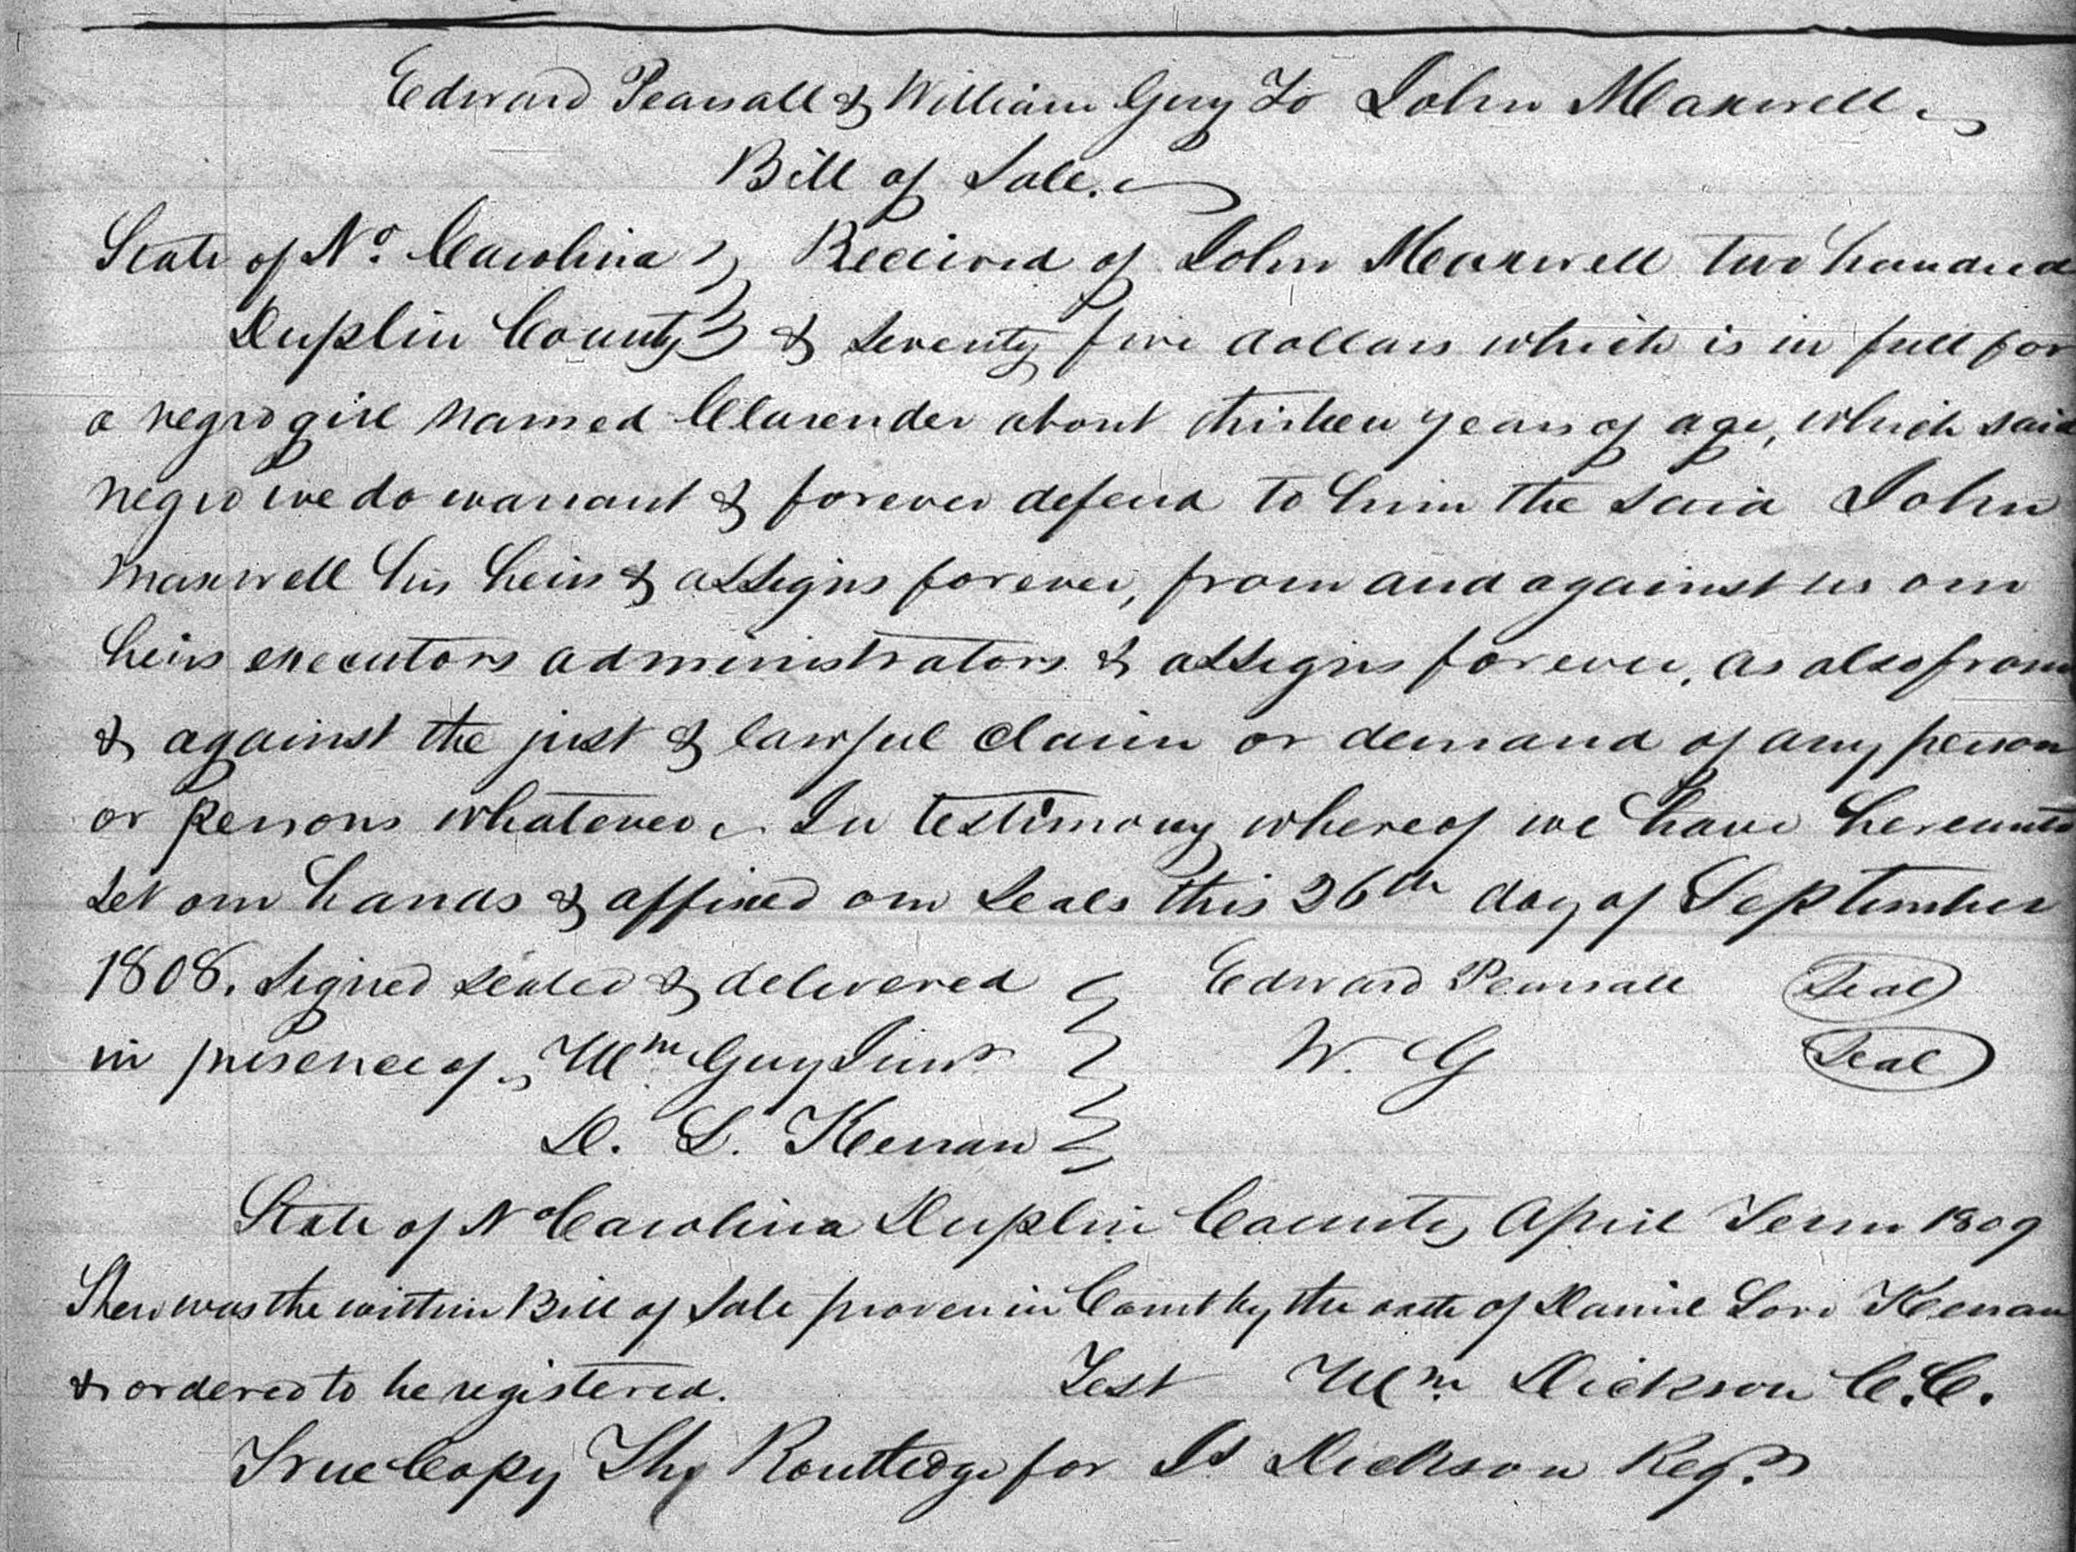 Edward Pearsall & William Guy To John Maxwell
Bill of Sale.
State of No. Carolina } Received of John Maxwell two hundred
Duplin County } & seventy five dollars which is in full for
a negro girl named Clarender about thirteen years of age, which said
negro we do warrant & forever defend to him the said John
Maxwell his heirs & assigns forever, from and against us our
heirs executors administrators & assigns forever, as also from
& against the just & lawful claim or demand of any person
or persons whatever. In testimony whereof we have hereunto
set our hands & affixed our seals this 26th day of September
1808. Signed sealed & delivered } Edward Pearsall Seal
in presence of Wm Guy Junr } W. G Seal
D. L. Kenan }
State of No Carolina Duplin County April Term 1809
Then was the within Bill of Sale proven in Court by the oath of Daniel Love Kenan
& ordered to be registered. Test Wm Dickson C.C.
True Copy Thos Routledge for Js Dickson Regr